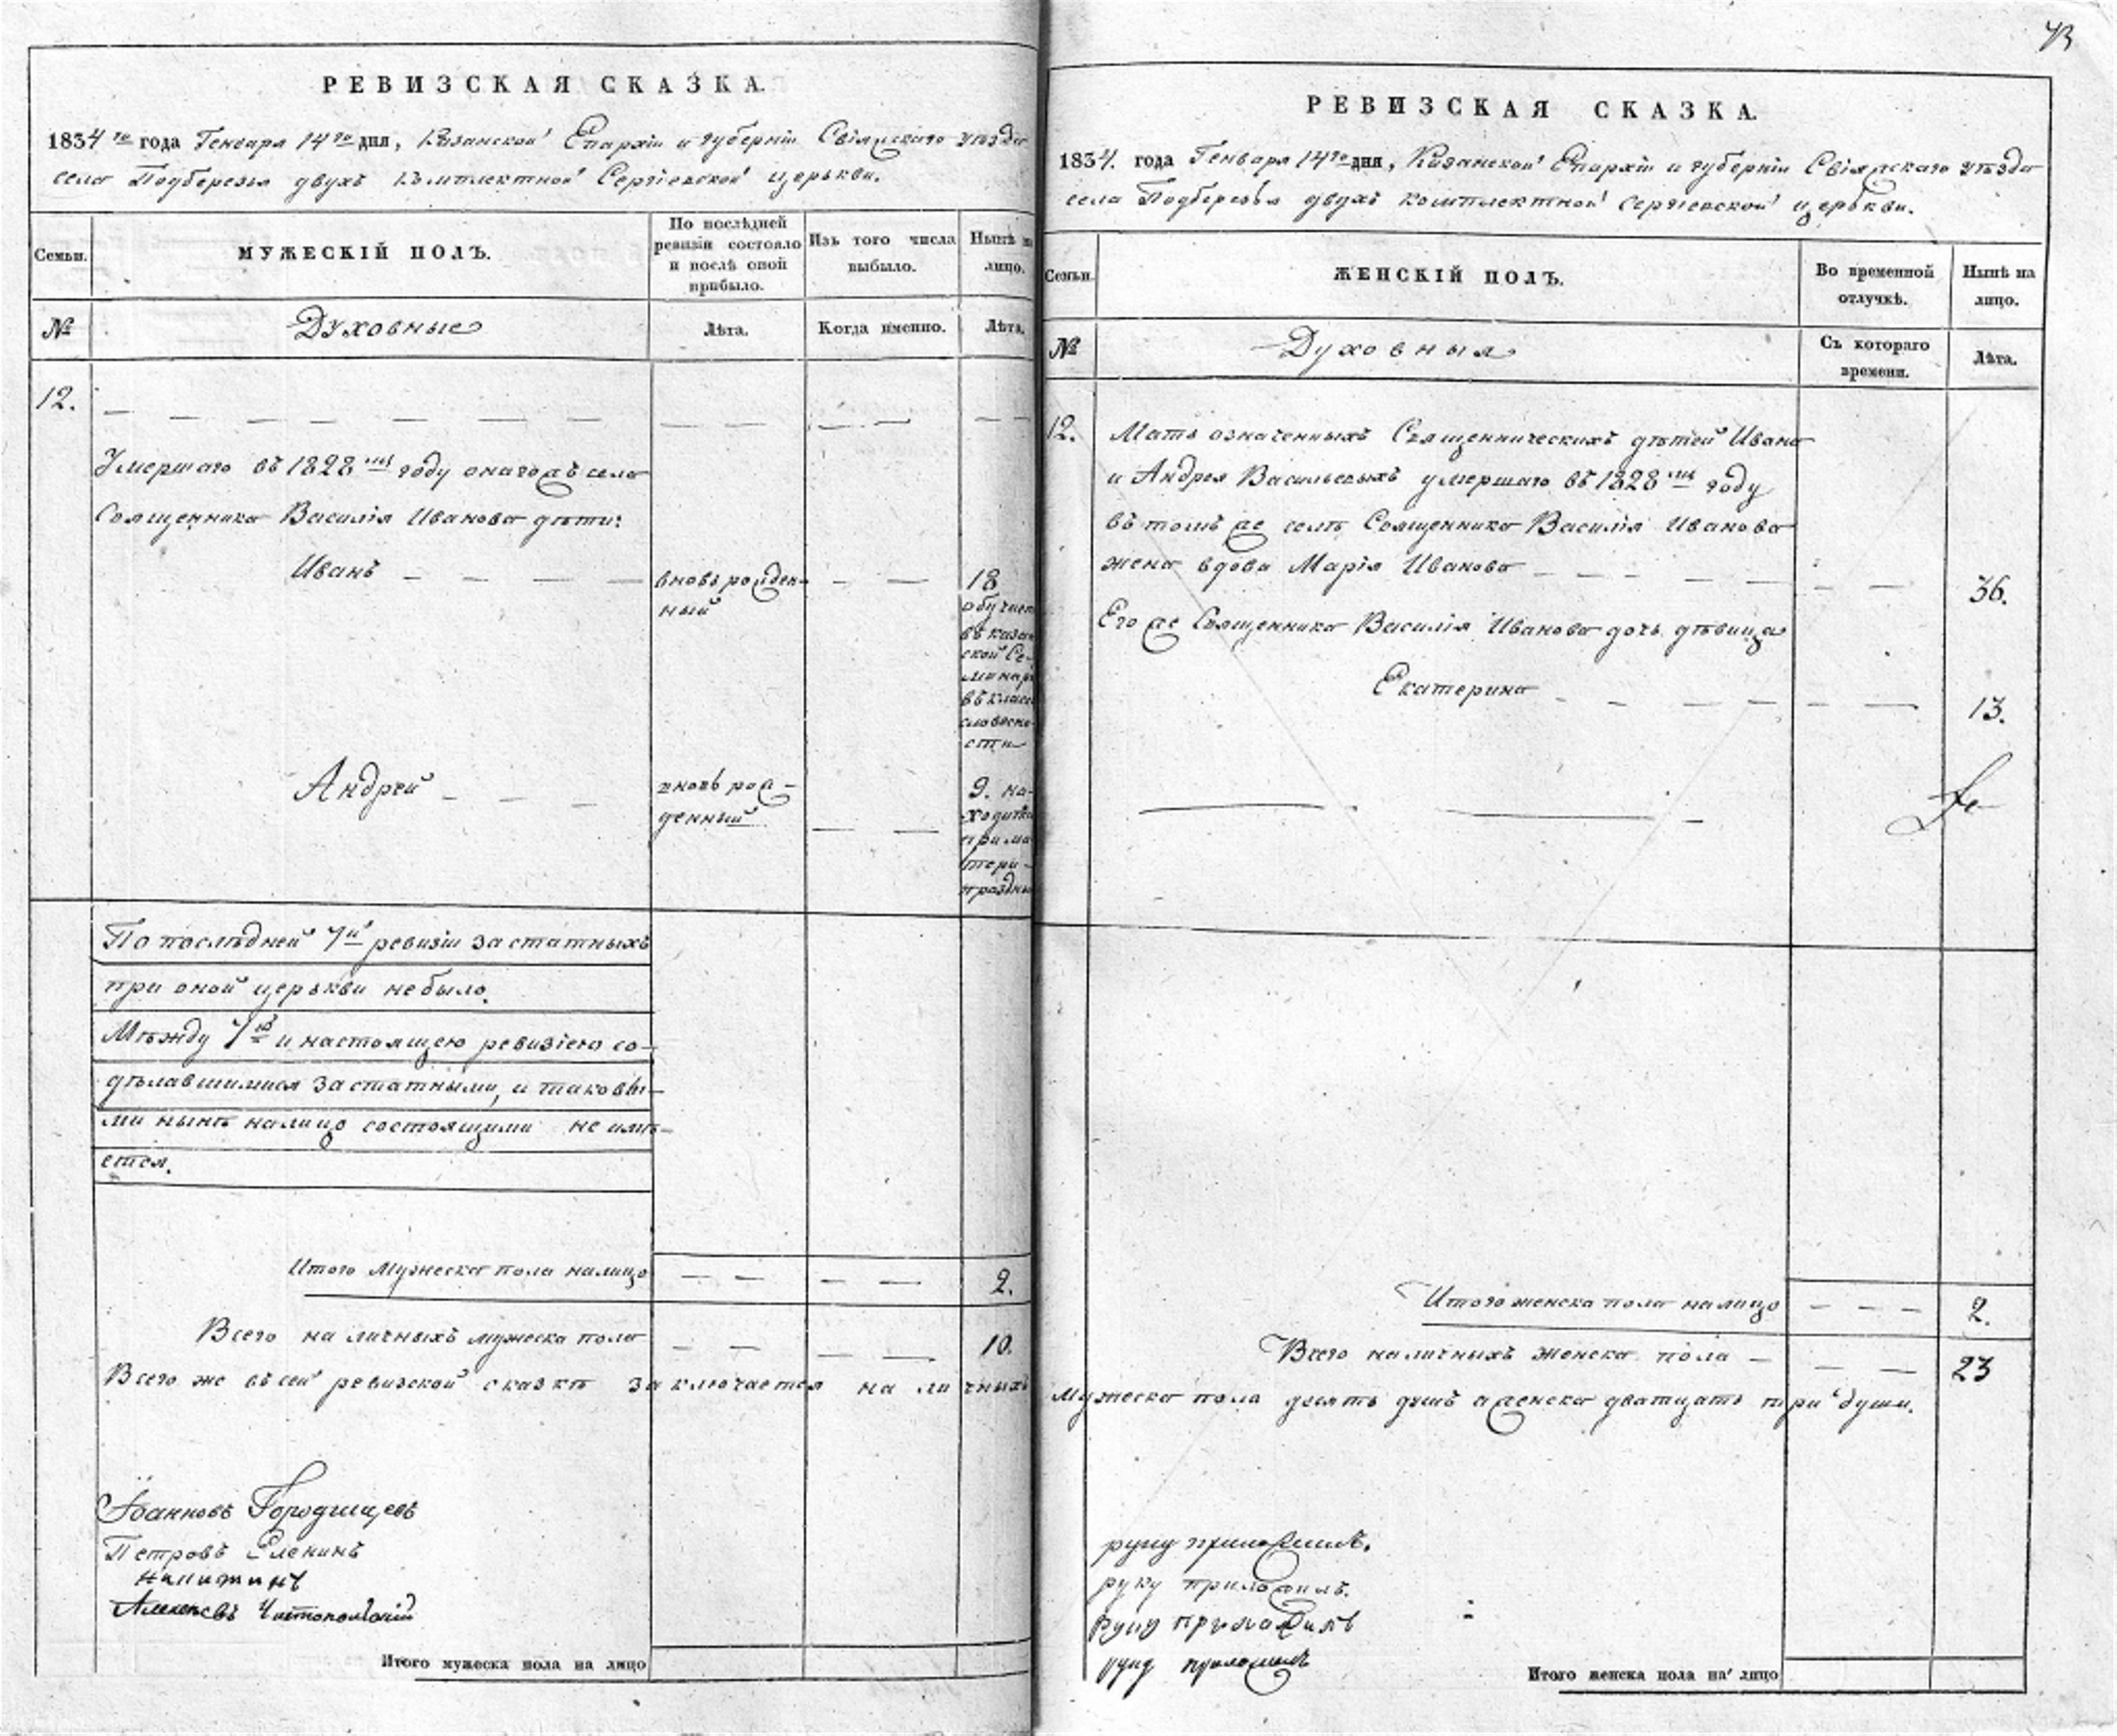 43
РЕВИЗСКАЯ СКАЗКА.
1834го года Генваря 14го дня, Казанской Епархіи и губерніи Свіяжскаго уѣзда
села Подберезья двухъ комплектной Сергіевской церькви.
Семьи.
МУЖЕСКІЙ ПОЛЪ.
По послѣдней
ревизіи состояло
и послѣ оной
прибыло.
Изъ того числа
выбыло.
Нынѣ на
лицо.
№
Духовные
Лѣта.
Когда именно.
Лѣта.
12.
Умершаго въ 1828мъ году онагожъ села
Священника Василія Иванова дѣти:
Иванъ
вновь рожден-
ный
18
обучает
въ казан
ской Се-
минар
въ класс
словесно-
сти
Андрей
вновь рож-
денный
9. на-
ходитс
при ма
тери
праздны
По послѣдней 7й ревизіи застатныхъ
при оной церькви небыло.
Мѣжду 7ю и настоящею ревизіею со-
дѣлавшимися застатными, и таковы-
ми нынѣ налицо состоящими не имѣ-
ется.
Итого мужеска пола налицо
2.
Всего наличныхъ мужеска пола
10.
Всего же въ сей ревизской сказкѣ заключается на личныхъ
Іоанновъ Городищевъ
Петровъ Еленинъ
Никитинъ
Алексѣевъ Чистопольскій
Итого мужеска пола на лицо
РЕВИЗСКАЯ СКАЗКА.
1834. года Генваря 14го дня, Казанской Епархіи и губерніи Свіяжскаго уѣзда
села Подберезья двухъ комплектной Сергіевской церькви.
Семьи.
ЖЕНСКІЙ ПОЛЪ.
Во временной
отлучкѣ.
Нынѣ на
лицо.
№
Духовныя
Съ котораго
времени.
Лѣта.
12.
Мать означенныхъ Священническихъ дѣтей Ивана
и Андрея Васильевыхъ умершаго въ 1828мъ году
въ томъ же селѣ Священника Василія Иванова
жена вдова Марія Иванова
36.
Его же Священника Василія Иванова дочь дѣвица
Екатерина
13.
Итого женска пола налицо
2.
Всего наличныхъ женска пола
23
Мужеска пола десять душъ а женска дватцать три души.
руку приложилъ.
руку приложилъ.
Руку приложилъ
руку приложилъ
Итого женска пола на лицо